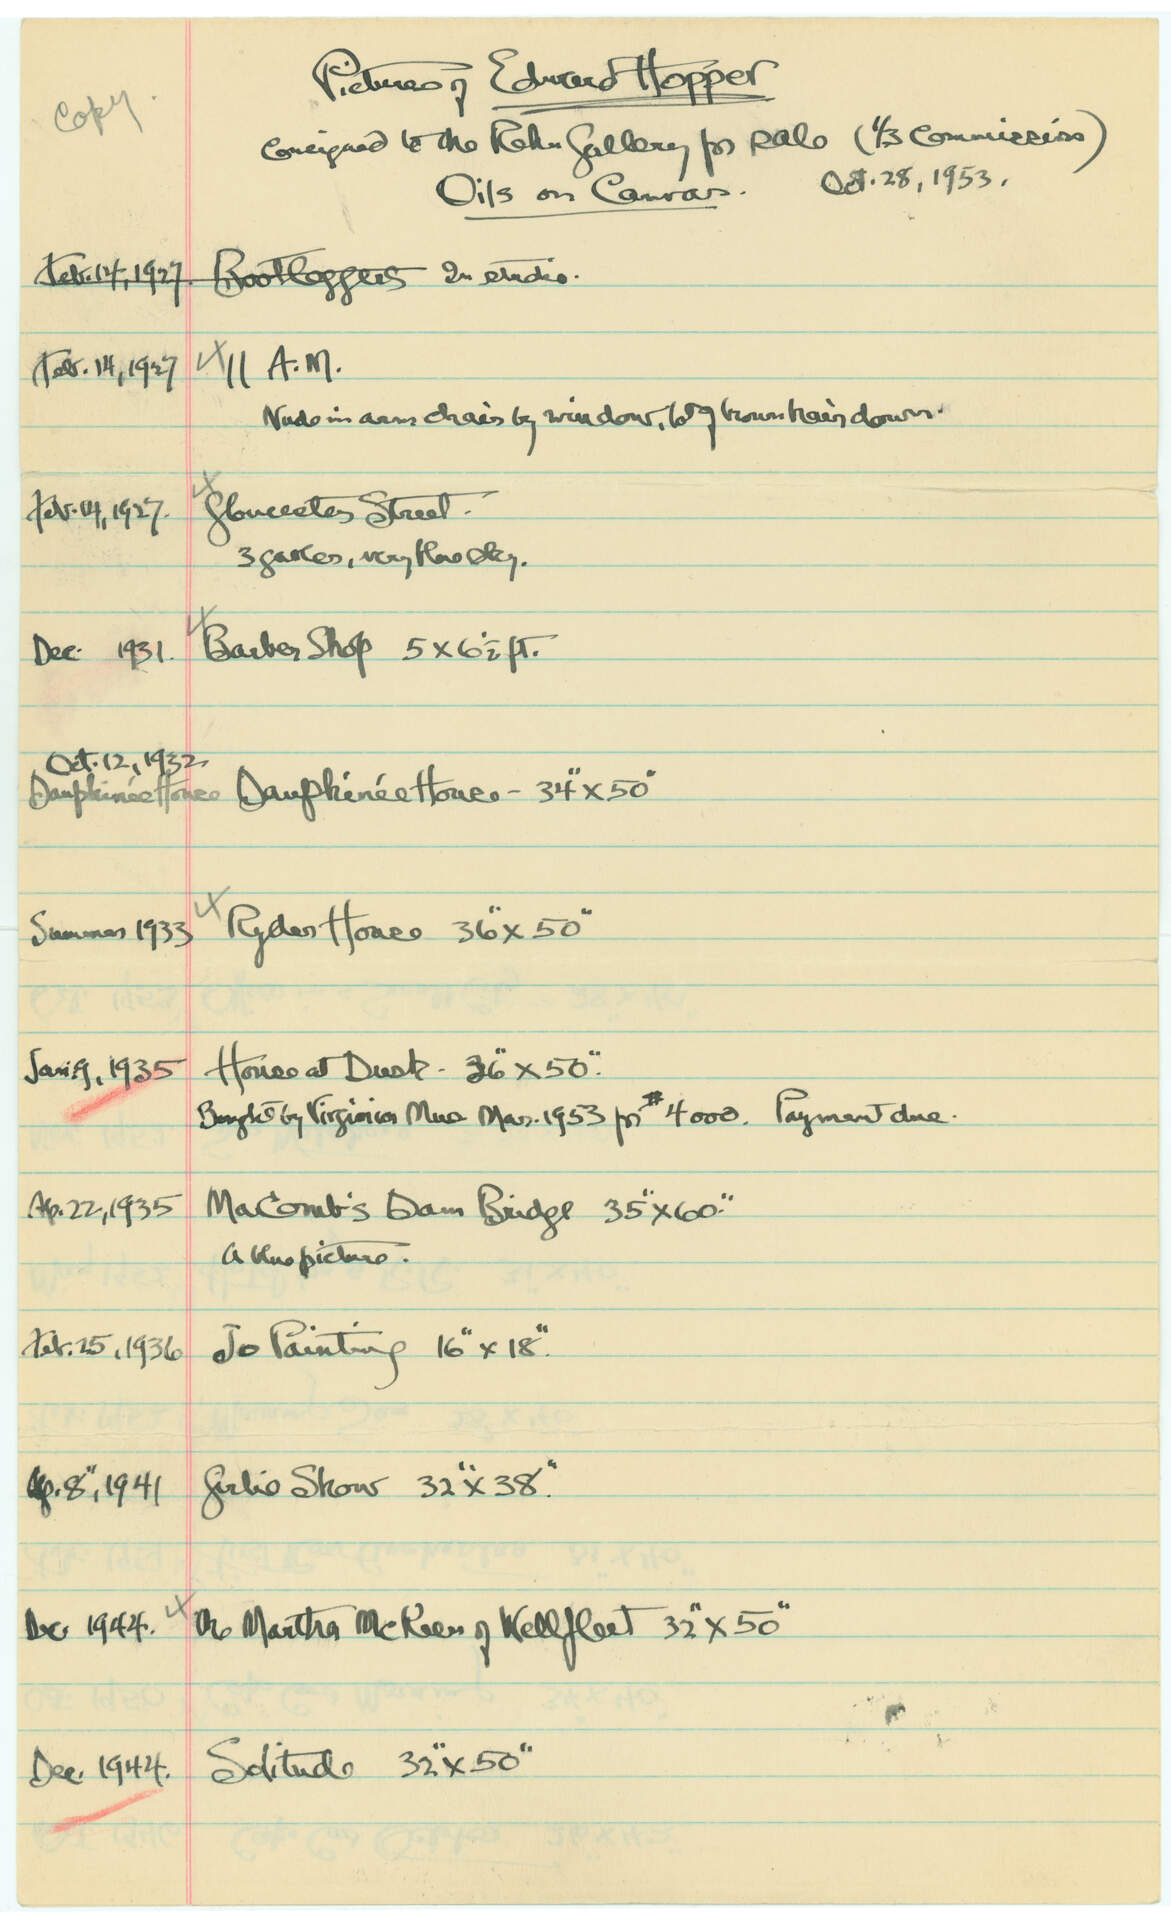 Copy.
Pictures of Edward Hopper
consigned to the Rehn Gallery for sale (1/3 commission)
Oils on Canvas. Oct. 28, 1953.
Feb. 14, 1927. Bootleggers In studio.
Feb. 14, 1927 11 A.M.
Nude in arm chair by window, long brown hair down.
Feb. 14, 1927. Gloucester Street.
3 gables, very blue sky.
Dec. 1931. Barber Shop 5 x 6½ ft.
Oct. 12, 1932.
Dauphinée House Dauphinée House - 34" x 50"
Summer 1933 Ryder House 36" x 50"
Jan. 9, 1935 House at Dusk - 36" x 50".
Bought by Virginia Mus Mar. 1953 for $4000. Payment due.
Ap. 22, 1935 MaComb's Dam Bridge 35" x 60".
A blue picture.
Feb. 25, 1936 Jo Painting 16" x 18".
Ap. 8", 1941 Girlie Show 32" x 38".
Dec 1944. The Martha McKeen of Wellfleet 32" x 50"
Dec. 1944. Solitude 32" x 50"